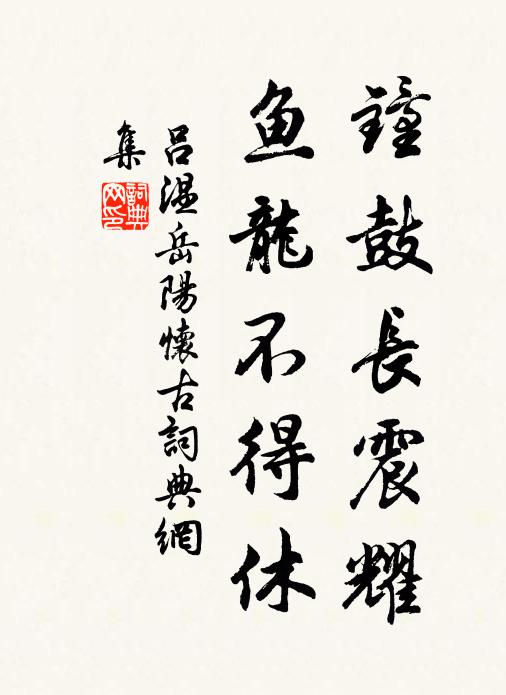 鐘鼓長震耀
魚龍不得休
呂温岳陽懷古詞典網
集
詞典網印